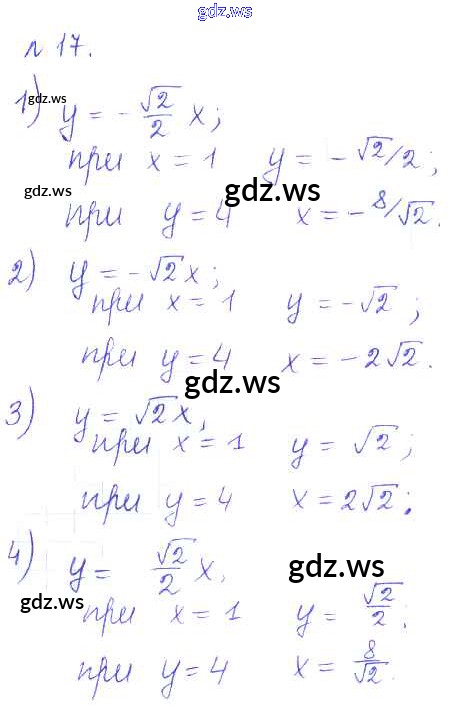 gdz.ws
№ 17.
1) gdz.ws y = - √2/2 x;
при x = 1 y = - √2/2;
gdz.ws gdz.ws
при y = 4 x = - 8/√2.
2) y = - √2 x;
при x = 1 y = - √2;
при y = 4 x = - 2√2.
gdz.ws
3) y = √2 x,
при x = 1 y = √2;
при y = 4 x = 2√2;
4) y = √2/2 x, gdz.ws
gdz.ws
при x = 1 y = √2/2;
при y = 4 x = 8/√2.
gdz.ws